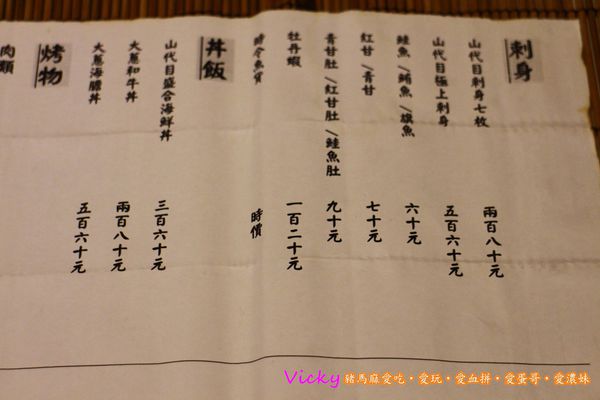 刺身
山代目刺身七枚 兩百八十元
山代目極上刺身 五百六十元
鮭魚/鮪魚/旗魚 六十元
紅甘/青甘 七十元
青甘肚/紅甘肚/鮭魚肚 九十元
牡丹蝦 一百二十元
時令魚貨 時價
丼飯
山代目盛合海鮮丼 三百六十元
大蔥和牛丼 兩百八十元
大蔥海膽丼 五百六十元
烤物
肉類
Vicky 豬馬麻愛吃‧愛玩‧愛血拼‧愛蛋哥‧愛濃妹